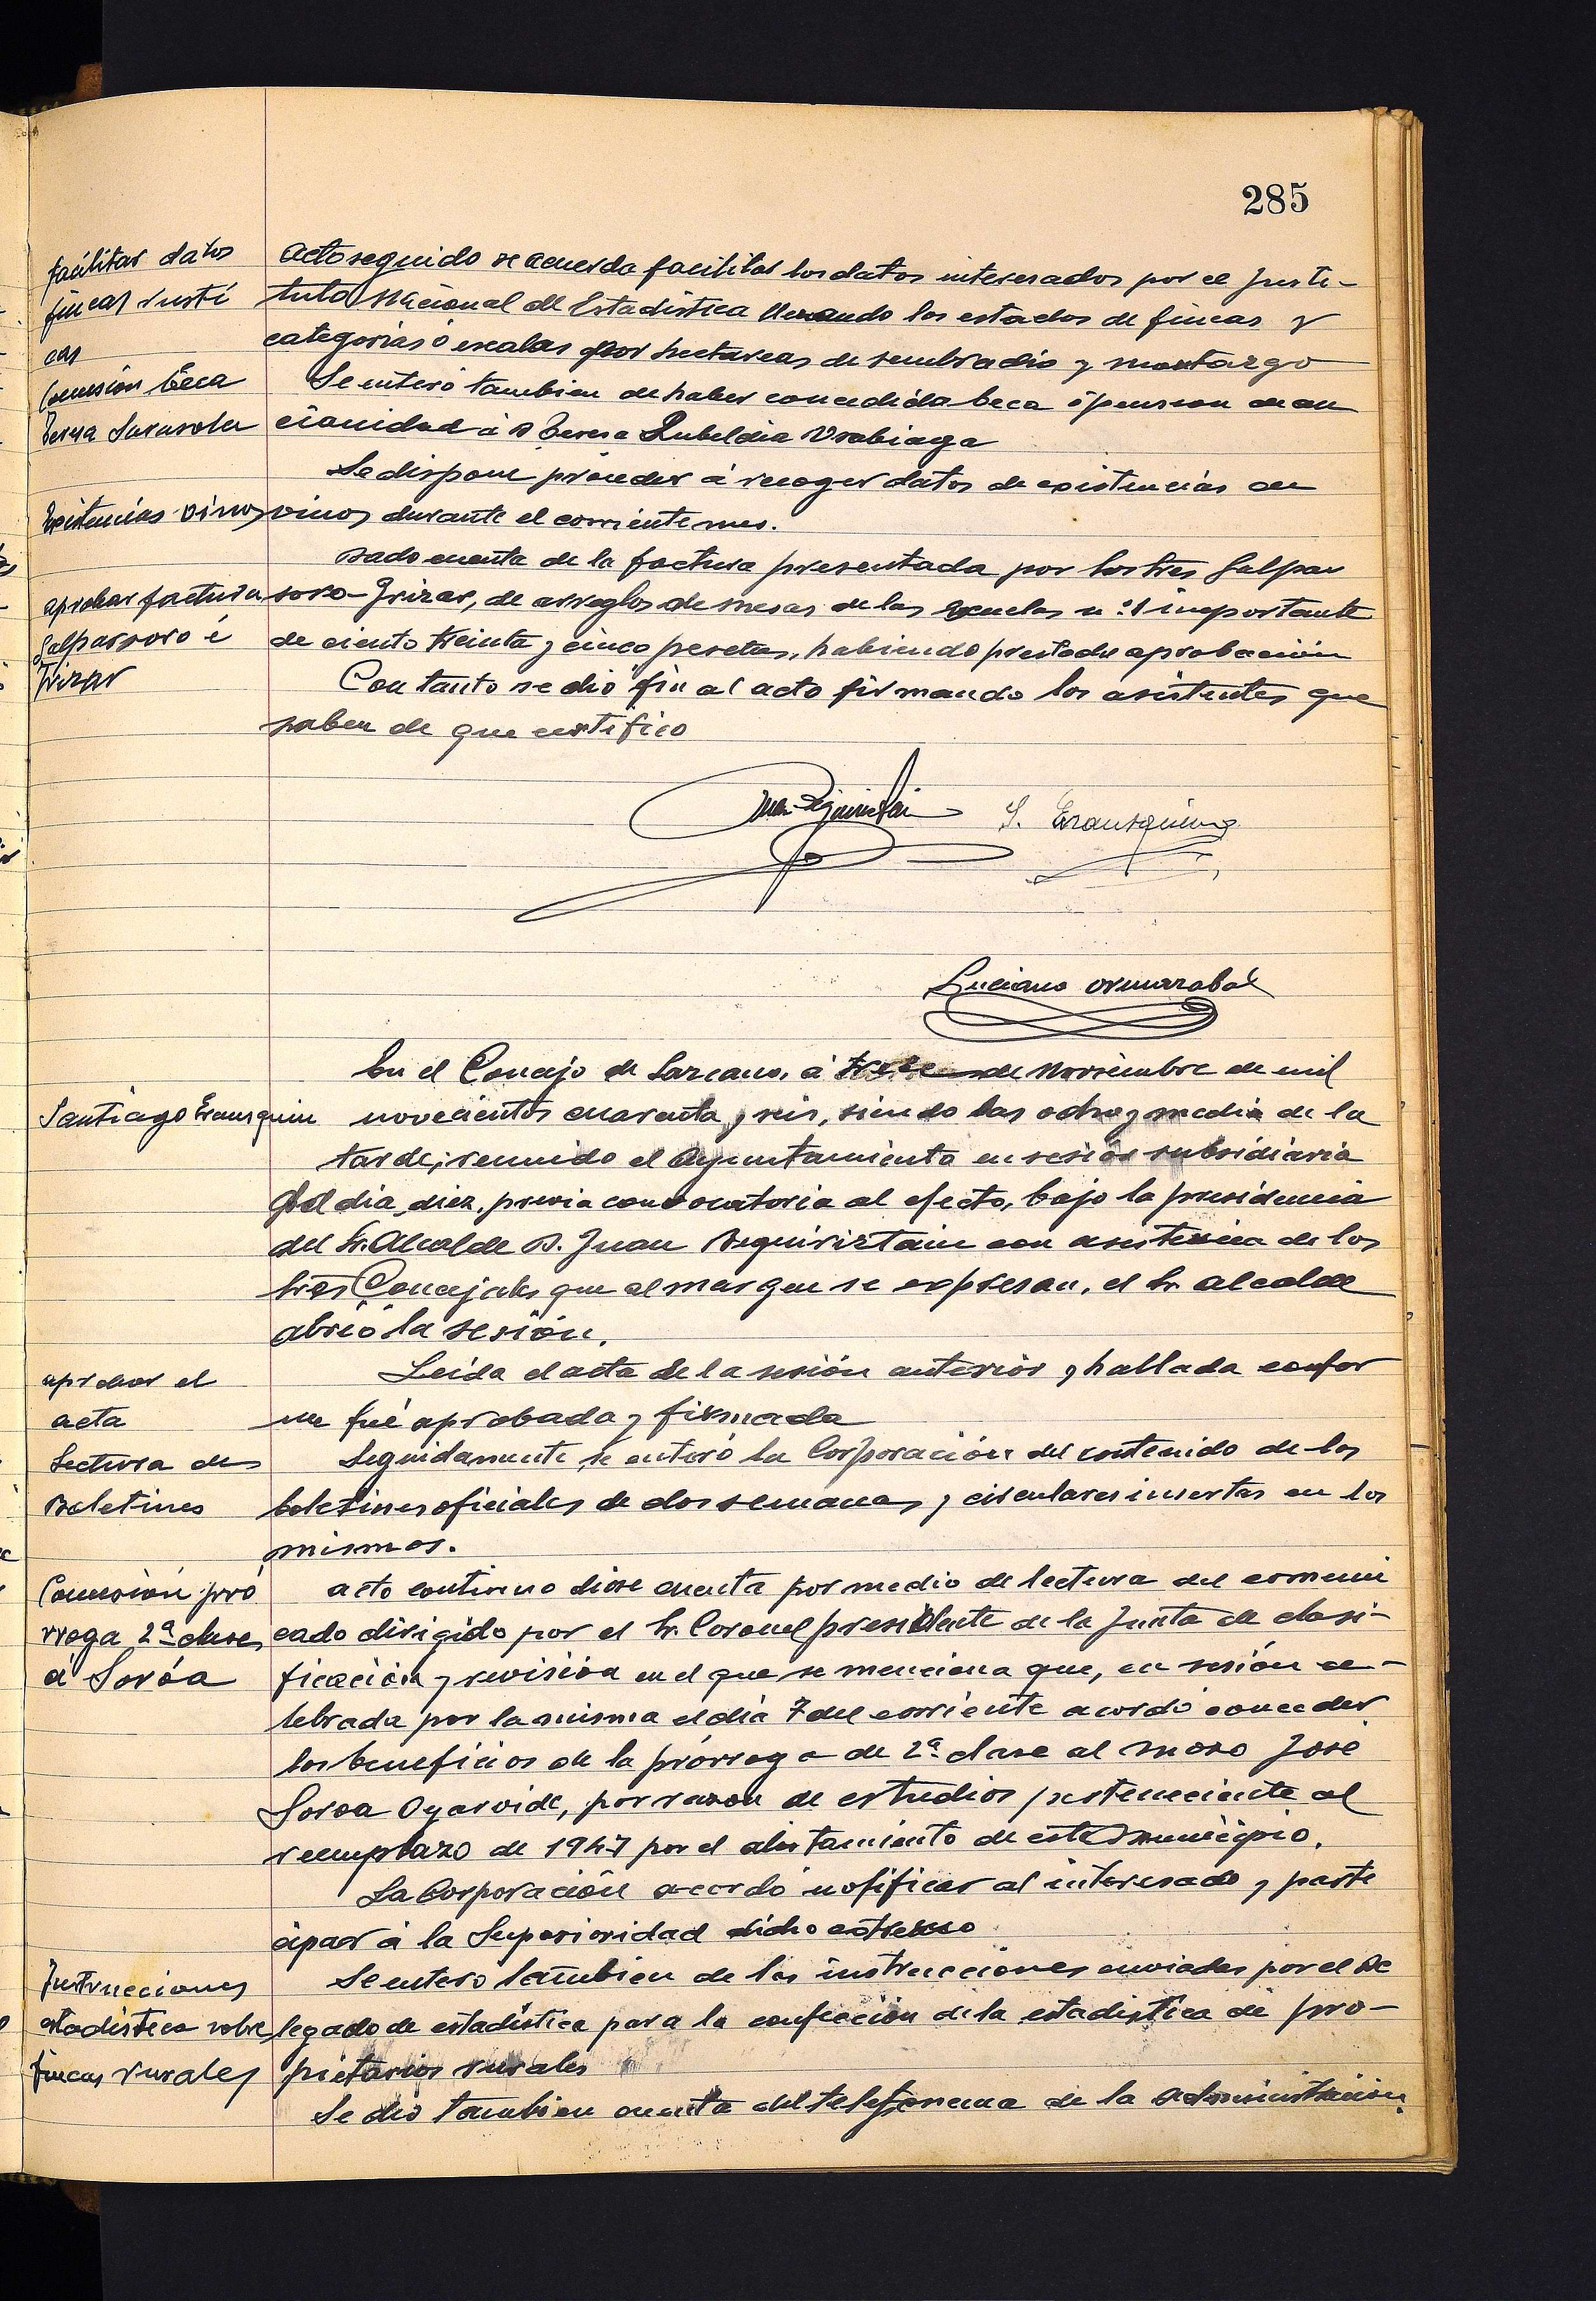 285
facilitar datos
fincas rusti
cas
Acto seguido se acuerda facilitar los datos interesados por el Insti-
tuto Nacional de Estadistica llenando los estados de fincas y
categorias ó escalas por hectareas de sembradio y montazgo
Concesión beca
Se enteró tambien de haber concedida beca ó pension de an
cianidad á Dª Teresa Zubeldia Urabiaga
Se dispone proceder á recoger datos de existencias de
Existencias vinos
vinos durante el corriente mes.
aprobar factura
Galparsoro é
Irizar
Dado cuenta de la factura presentada por los tres Galpar
soro-Irizar, de arreglos de mesas de las escuelas nº 1 importante
de ciento treinta y cinco pesetas, habiendo prestado aprobación
Con tanto se dió fin al acto firmando los asistentes que
saben de que certifico
S. Erausquin
Luciano Ormazabal
En el Concejo de Lazcano, á trece de Noviembre de mil
Santiago Erausquin
novecientos cuarenta y seis, siendo las ocho y media de la
tarde, reunido el Ayuntamiento en sesión subsidiaria
del dia diez, previa convocatoria al efecto, bajo la presidencia
del Sr. Alcalde D. Juan Beguiriztain con asistencia de los
Sres Concejales que al margen se expresan, el Sr. alcalde
abrió la sesión.
aprobar el
acta
Leida el acta de la sesión anterior y hallada confor
me fué aprobada y firmada
Lectura de
Boletines
Seguidamente se enteró la Corporación del contenido de los
boletines oficiales de dos semanas y circulares insertas en los
mismos.
Concesión pró
rroga 2ª clase
á Soróa
acto continuo diose cuenta por medio de lectura del comuni
cado dirigido por el Sr. Coronel presidente de la Junta de clasi-
ficación y revisión en el que se menciona que, en sesión ce-
lebrada por la misma el dia 7 del corriente acordó conceder
los beneficios de la prórroga de 2ª clase al mozo José
Soroa Oyarvide, por razon de estudios perteneciente al
reemplazo de 1947 por el alistamiento de este municipio.
La Corporación acordó notificar al interesado y parti
cipar á la Superioridad dicho extremo
Instrucciones
estadistica sobre
fincas rurales
Se entero tambien de las instrucciones enviadas por el De
legado de estadística para la confección de la estadistica de pro-
pietarios rurales
Se dió tambien cuenta del telefonema de la Administración